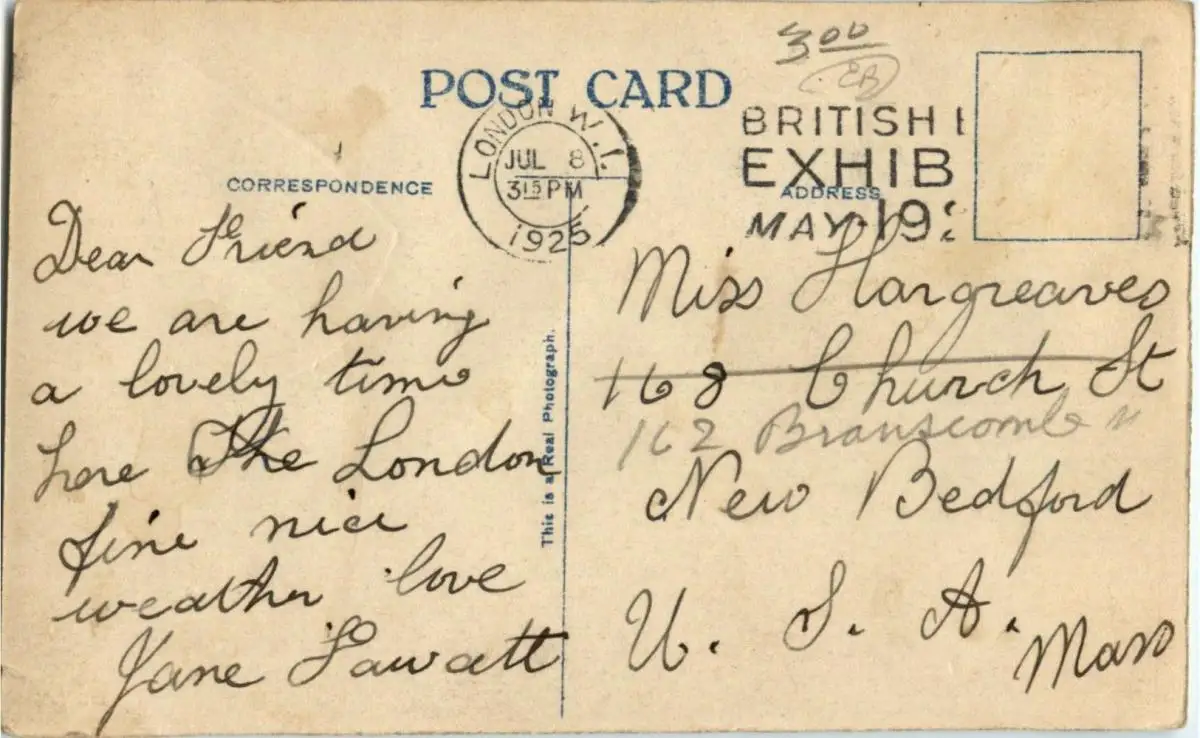 3 00
EB
POST CARD
LONDON W.1.
JUL 8
3 15 PM
1925
BRITISH E
EXHIB
MAY-192
CORRESPONDENCE
ADDRESS
Dear Friend
we are having
a lovely time
here The London
fine nice
weather love
Jane
This is a Real Photograph.
Miss Hargreaves
168 Church St
162 Branscomb
New Bedford
U. S. A.
Mass